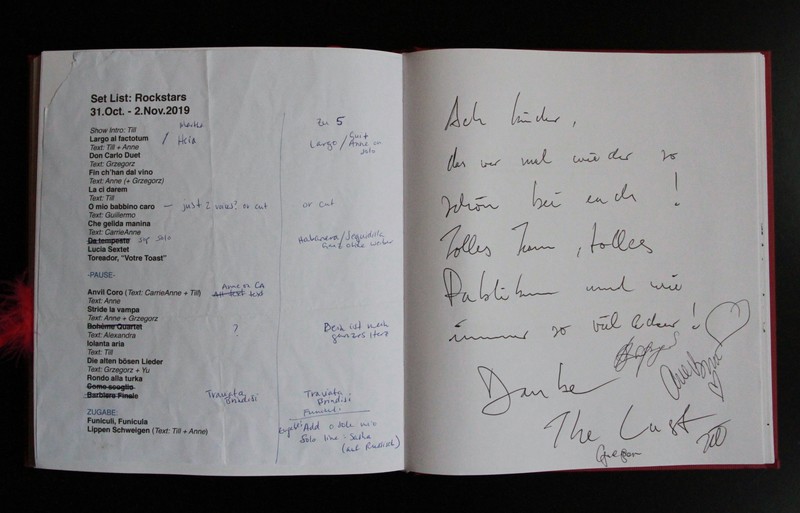 Set List: Rockstars
31.Oct. - 2.Nov.2019
Show Intro: Till
Largo al factotum
Text: Till + Anne
Don Carlo Duet
Text: Grzegorz
Fin ch'han dal vino
Text: Anne (+ Grzegorz)
La ci darem
Text: Till
O mio babbino caro
Text: Guillermo
Che gelida manina
Text: CarrieAnne
De tempeste
Lucia Sextet
Toreador, “Votre Toast”
-PAUSE-
Anvil Coro (Text: CarrieAnne + Till)
Text: Anne
Stride la vampa
Text: Anne + Grzegorz
Bohème Quartet
Text: Alexandra
Iolanta aria
Text: Till
Die alten bösen Lieder
Text: Grzegorz + Yu
Rondo alla turka
Come scoglio
Barbiere Finale
ZUGABE:
Funiculi, Funicula
Lippen Schweigen (Text: Till + Anne)
/ Heia
— just 2 voices? or cut
solo
Anne or CA
text
?
Traviata
Brindisi
zu 5
Largo /
Anne on
solo
or cut
Habanera / Seguidilla
Dein ist mein
ganzes Herz
Traviata
Brindisi
Funiculi
Add O sole mio
Solo line : Sasha
(auf Russisch)
Ach Kinder,
das war mal wieder so
schön bei euch !
Tolles Team , tolles
Publikum und wie
immer so viel !
Danke
The Cast
Till